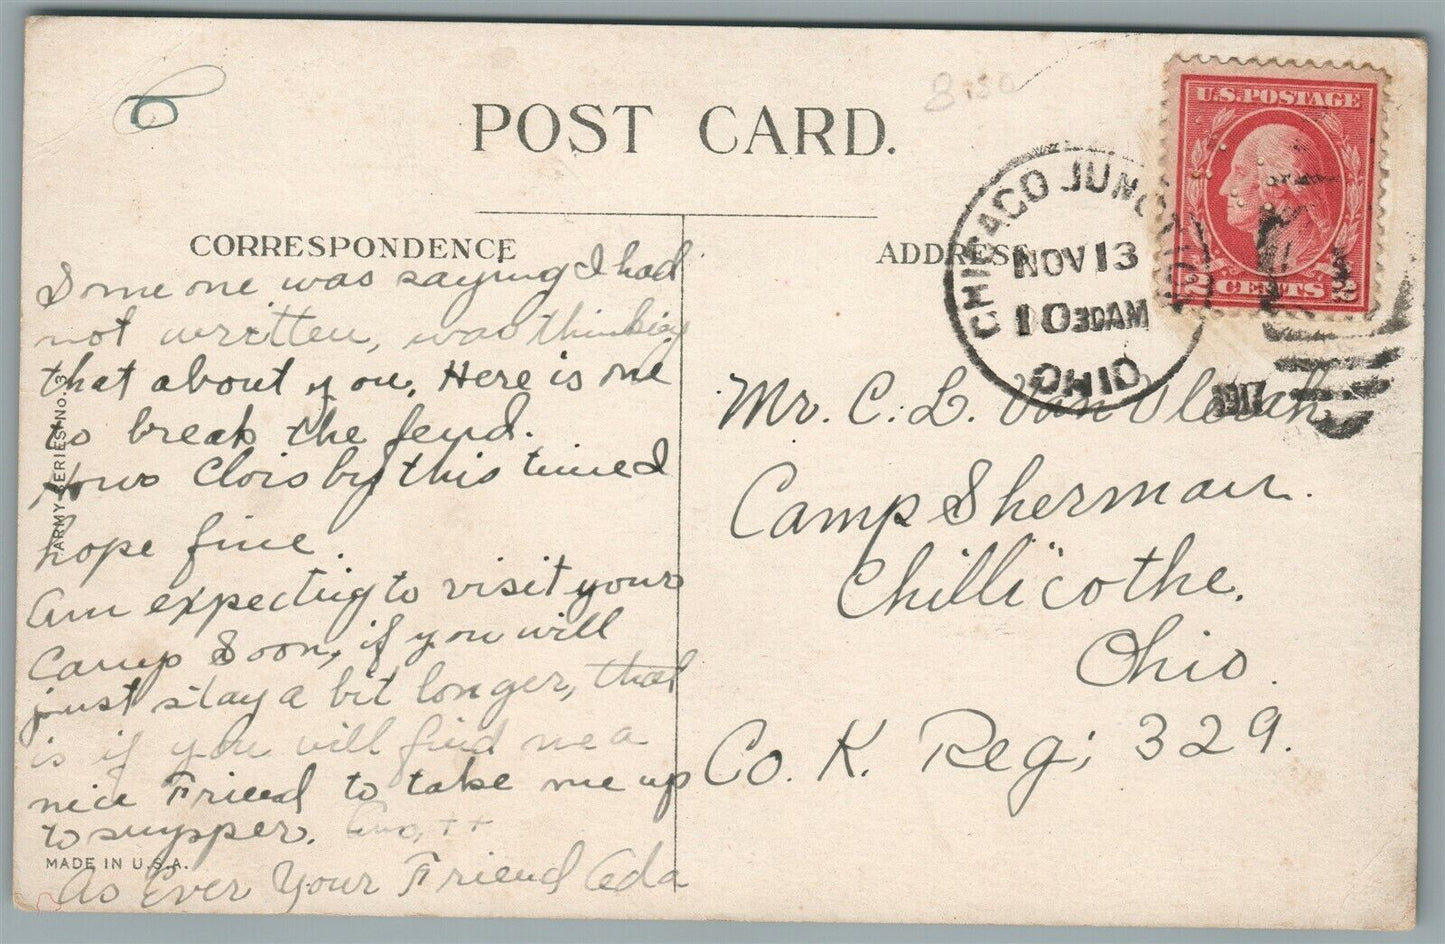 8.50
POST CARD.
U.S. POSTAGE
2 CENTS 2
CHICAGO JUNCTION
NOV 13
10 30 AM
OHIO
1917
CORRESPONDENCE
ADDRESS
Some one was saying I had
not written, was thinking
that about you. Here is one
to break the feud.
Hows Clois by this time I
hope fine.
Am expecting to visit your
Camp Soon, if you will
just stay a bit longer, that
is if you will find me a
nice Friend to take me up
to supper. ++
As Ever Your Friend Ada
Mr. C. L. Van
Camp Sherman.
Chillicothe.
Ohio.
Co. K. Reg; 329.
ARMY SERIES NO. 3
MADE IN U.S.A.